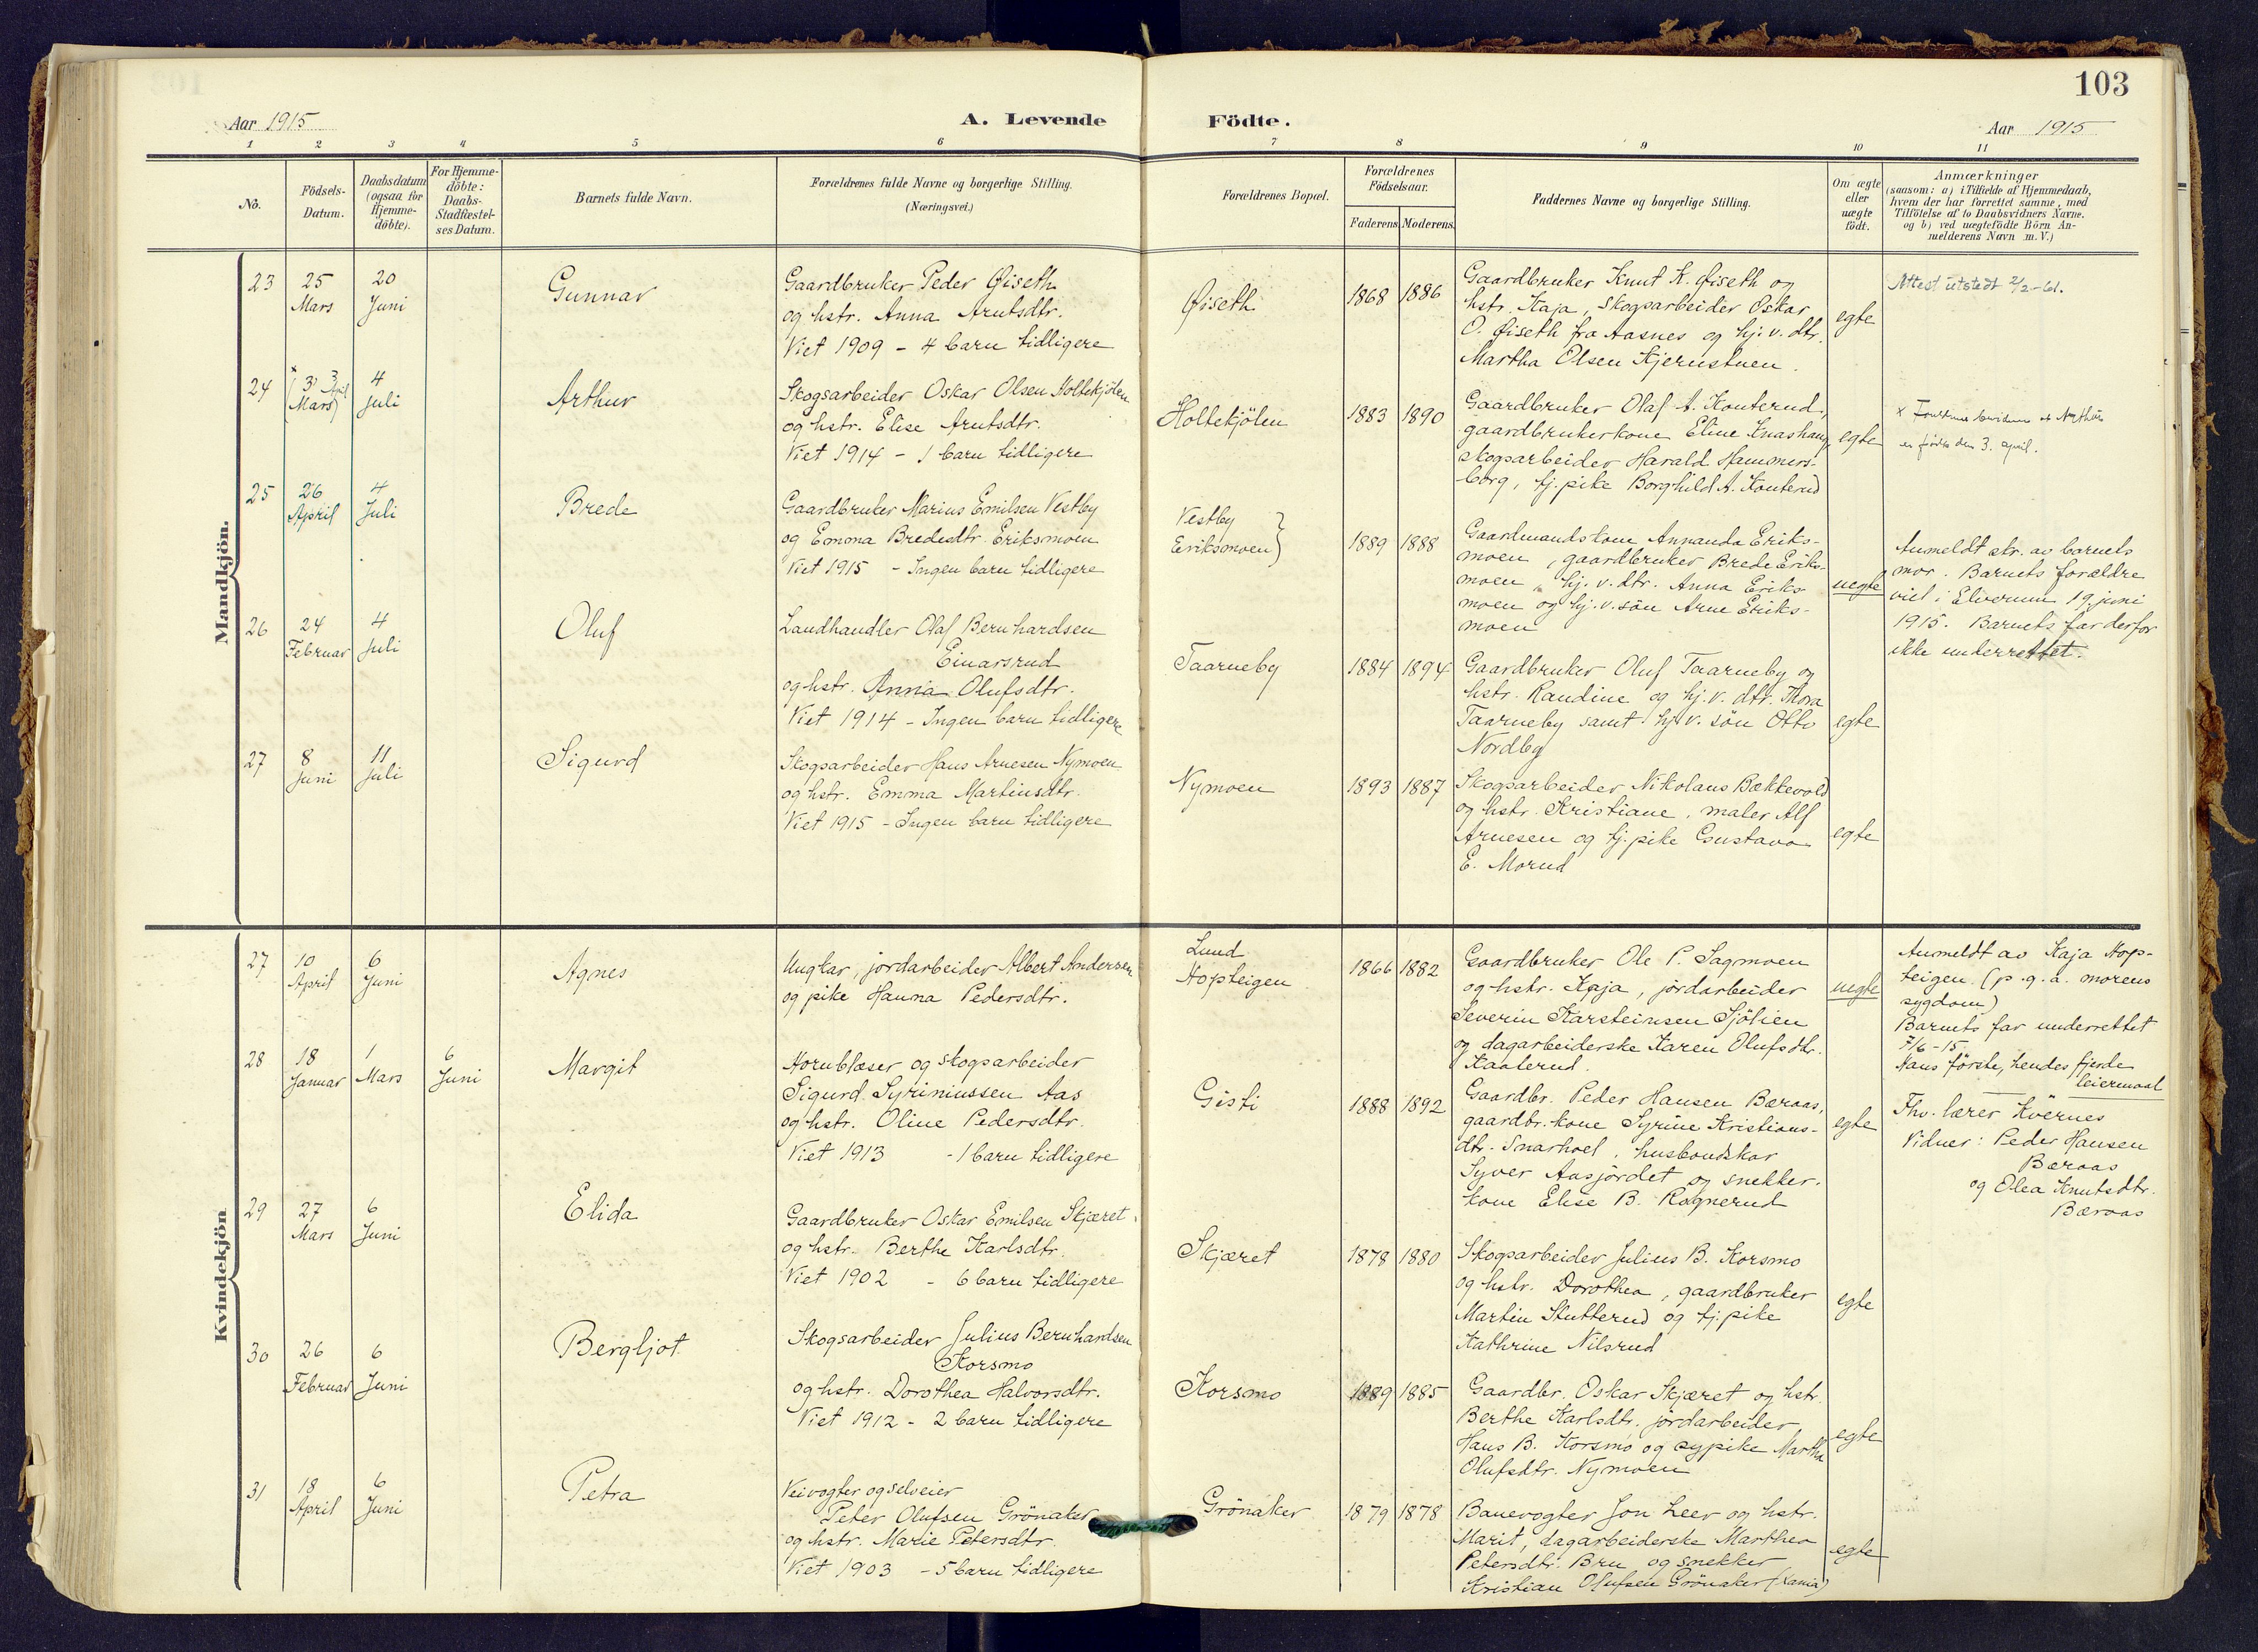 103
Aar 1915
A. Levende Födte.
Aar 1915
1 2 3 4 5 6 7 8 9 10 11
No.
Födsels-
Datum.
Daabsdatum
(ogsaa for
Hjemme-
döbte).
For Hjemme-
döbte:
Daabs-
Stadfæstel-
ses Datum.
Barnets fulde Navn.
Forældrenes fulde Navne og borgerlige Stilling.
(Næringsvei.)
Forældrenes Bopæl.
Forældrenes
Födselsaar.
Faderens Moderens.
Faddernes Navne og borgerlige Stilling.
Om ægte
eller
uægte
födt.
Anmærkninger
(saasom: a) i Tilfælde af Hjemmedaab,
hvem der har forrettet samme, med
Tilföielse af to Daabsvidners Navne.
og b) ved uægtefödte Börn An-
melderens Navn m. V.)
Mandkjön.
23
25
Mars
20
Juni
Gunnar
Gaardbruker Peder Øiseth
og hstr. Anna Arntsdtr.
Viet 1909 - 4 barn tidligere
Øiseth
1868 1886
Gaardbruker Knut K. Øiseth og
hstr. Kaja, skogsarbeider Oskar
O. Øiseth fra Aasnes og hj. v. dtr.
Martha Olsen Kjernstuen.
egte
Attest utstedt 2/2-61.
24
x
(3 3 April
Mars)
4
Juli
Arthur
Skogsarbeider Oskar Olsen Holtekjölen
og hstr. Elise Arntsdtr.
Viet 1914 - 1 barn tidligere
Holtekjölen
1883 1890
Gaardbruker Olaf A. Konterud,
gaardbrukerkone Eline Knashaug,
skogsarbeider Harald Hammers-
borg, tj. pike Borghild A. Konterud
egte
x
Arthur
er födt den 3. april.
25
26
April
4
Juli
Brede
Gaardbruker Marius Emilsen Vestby
og Emma Bredesdtr. Eriksmoen
Viet 1915 - Ingen barn tidligere
Vestby
Eriksmoen}
1889 1888
Gaardmandskone Annanda Eriks-
moen, gaardbruker Brede Eriks-
moen, hj. v. dtr. Anna Eriks-
moen og hj. v. sön Arne Eriks-
moen
uegte
Anmeldt str. av barnets
mor. Barnets forældre
viet i Elverum 19. juni
1915. Barnets far derfor
ikke underrettet.
26
24
Februar
4
Juli
Oluf
Landhandler Olaf Bernhardsen
Einarsrud
og hstr. Anna Olufsdtr.
Viet 1914 - Ingen barn tidligere
Taarneby
1884 1894
Gaardbruker Oluf Taarneby og
hstr. Randine og hj. v. dtr. Thora
Taarneby samt hj. v. sön Otto
Nordby
egte
27
8
Juni
11
Juli
Sigurd
Skogsarbeider Hans Arnesen Nymoen
og hstr. Emma Martinsdtr.
Viet 1915 - Ingen barn tidligere
Nymoen
1893 1887
Skogsarbeider Nikolaus Bækkevold
og hstr. Kristiane, maler Alf
Arnesen og tj. pike Gustava
E. Morud
egte
Kvindekjön
27
10
April
6
Juni
Agnes
Ungkar, jordarbeider Albert Andersen
og pike Hanna Pedersdtr.
Lund
Hopteigen
1866 1882
Gaardbruker Ole P. Sagmoen
og hstr. Kaja, jordarbeider
Severin Karsteinsen Sjölien
og dagarbeiderske Karen Olufsdtr.
Kaaterud.
uegte
Anmeldt av Kaja Hop-
teigen. (p. g. a. morens
sygdom)
Barnets far underrettet
7/6-15
Hans förste, hendes fjerde
leiermaal
28
18
Januar
1
Mars
6
Juni
Margit
Hornblæser og skogsarbeider
Sigurd Syrinussen Aas
og hstr. Oline Pedersdtr.
Viet 1913 - 1 barn tidligere
Gisti
1888 1892
Gaardbr. Peder Hansen Beraas,
gaardbr. kone Syrine Kristians-
dtr. Snarhoel, husbondskar
Syver Aasjordet og snekker-
kone Elise B. Rognerud
egte
Fhv. lærer Kvernes
Vidner: Peder Hansen
Beraas
og Olea Knutsdtr.
Beraas
29
27
Mars
6
Juni
Elida
Gaardbruker Oskar Emilsen Skjæret
og hstr. Berthe Karlsdtr.
Viet 1902 - 6 barn tidligere
Skjæret
1878 1880
Skogsarbeider Julius B. Korsmo
og hstr. Dorothea, gaardbruker
Martin Stutterud og tj. pike
Kathrine Nilsrud
egte
30
26
Februar
6
Juni
Bergljot
Skogsarbeider Julius Bernhardsen
Korsmo
og hstr. Dorothea Halvorsdtr.
Viet 1912 - 2 barn tidligere
Korsmo
1889 1885
Gaardbr. Oskar Skjæret og hstr.
Berthe Karlsdtr. jordarbeider
Hans B. Korsmo og sypike Martha
Olufsdtr. Nymoen
egte
31
18
April
6
Juni
Petra
Veivogter og selveier
Peter Olufsen Grönaker
og hstr. Marie Petersdtr.
Viet 1903 - 5 barn tidligere
Grönaker
1879 1878
Banevogter Jon Leer og hstr.
Marit, dagarbeiderske Marthea
Petersdtr. Bru og snekker
Kristian Olufsen Grönaker
egte